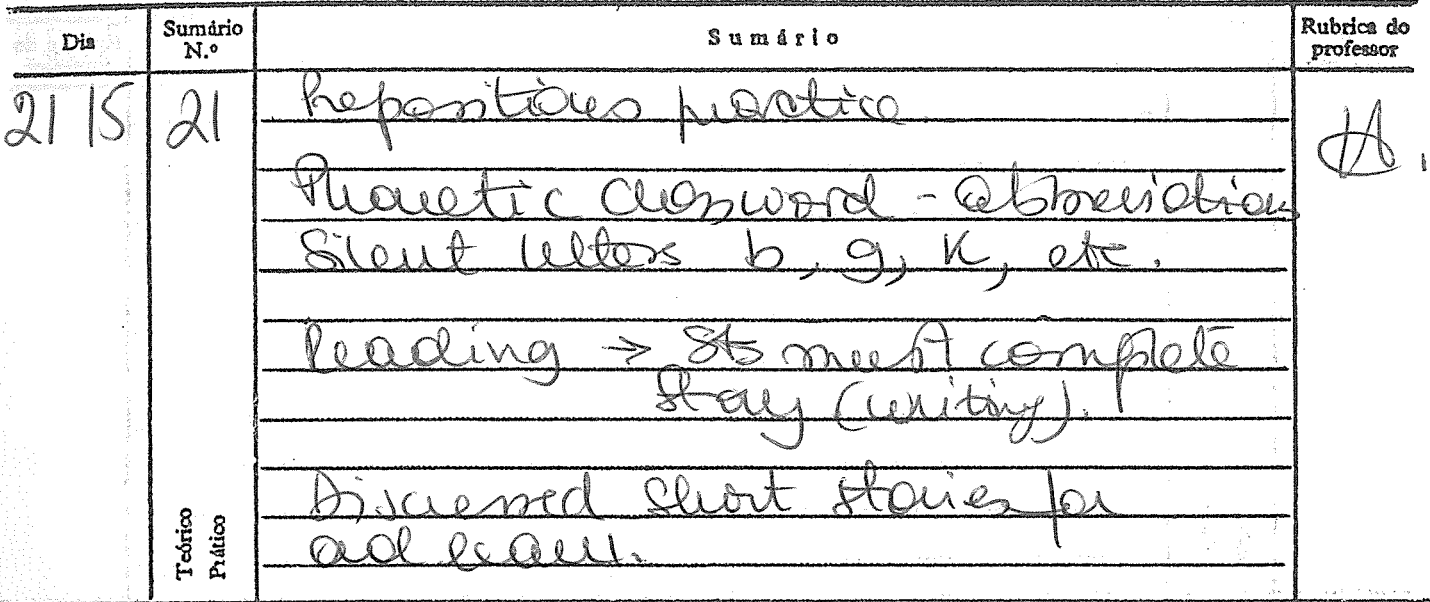 Dia Sumário N.º Sumário Rubrica do professor
21 15 21 Prepositions practice.
Phonetic crossword - abbreviation
Silent letters b, g, k, etc.
Reading → Sts must complete
story (writing).
Discussed short stories for
oral exam.
Teórico
Prático